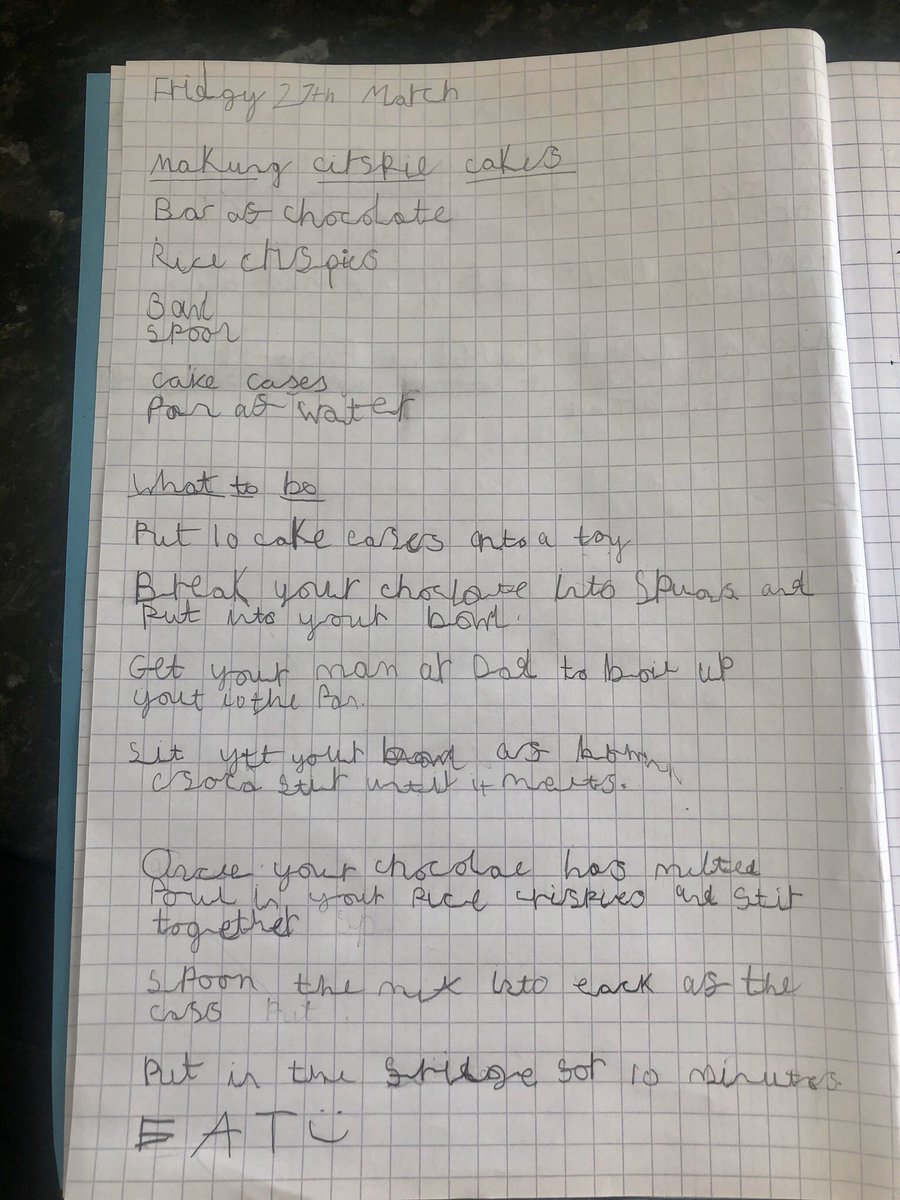 Fridgy 27th March
Making crispie cakes
Bar of chocolate
Rice crispies
Bowl
Spoon
cake cases
Pan of water
What to bo
Put 10 cake cases onto a tay
Break your choclate into and
Put into your bowl.
Get your mam or Dad to boil up
your the Pan.
your of
stir until it melts.
Once your chocolae has melted
Pour in your Rice crispies and stir
together
Spoon the mix into each of the
Put in the fridge for 10 minutes
EAT